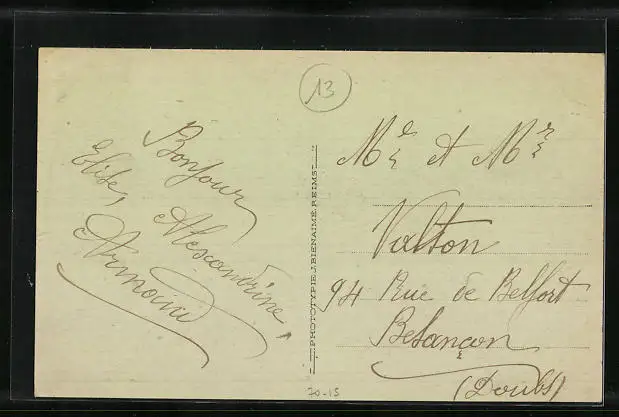 13
Bonjour
Elise, Alexandrine,
Armand
PHOTOTYPIE J. BIENAIMÉ, REIMS
Me et Mr
Valton
94 Rue de Belfort
Besançon
(Doubs)
70-15